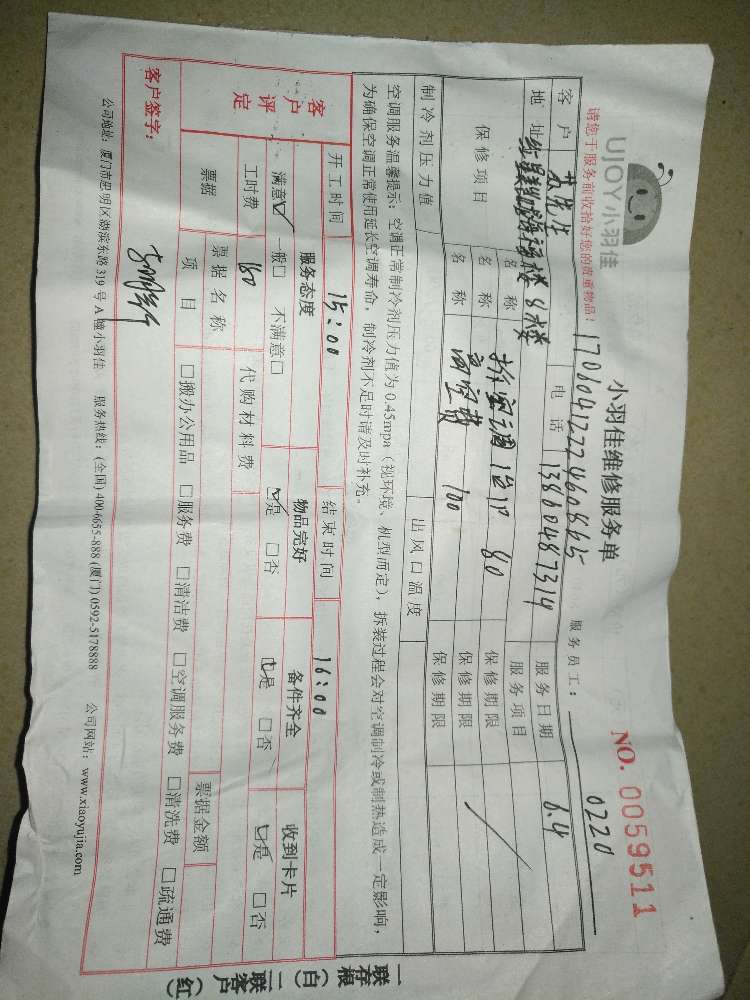 UJOY小羽佳
小羽佳维修服务单
NO. 0059511
请您于服务前收拾好您的贵重物品！
服务员工： 0220
客户 苏先生 电话 13860487314 服务日期 6.4
地址 红星美凯龙 8楼 服务项目
保修项目 名称 拆空调1台1P 80 保修期限
名称 保修期限
名称 高空费 100 保修期限
制冷剂压力值 出风口温度
空调服务温馨提示：空调正常制冷剂压力值为0.45mpa（视环境、机型而定），拆装过程会对空调制冷或制热造成一定影响，
为确保空调正常使用延长空调寿命，制冷剂不足时请及时补充。
开工时间 15:00 结束时间 16:00
客户评定 服务态度 物品完好 备件齐全 收到卡片
满意☑ 一般□ 不满意□ ☑是 □否 ☑是 □否 ☑是 □否
工时费 180 代购材料费
票据 票据名称 票据金额
项目 □搬办公用品 □服务费 □清洁费 □空调服务费 □清洗费 □疏通费
客户签字：
公司地址：厦门市思明区湖滨东路319号A幢小羽佳 服务热线：(全国) 400-6655-888 (厦门) 0592-5178888 公司网站：www.xiaoyujia.com
一联存根（白）二联客户（红）